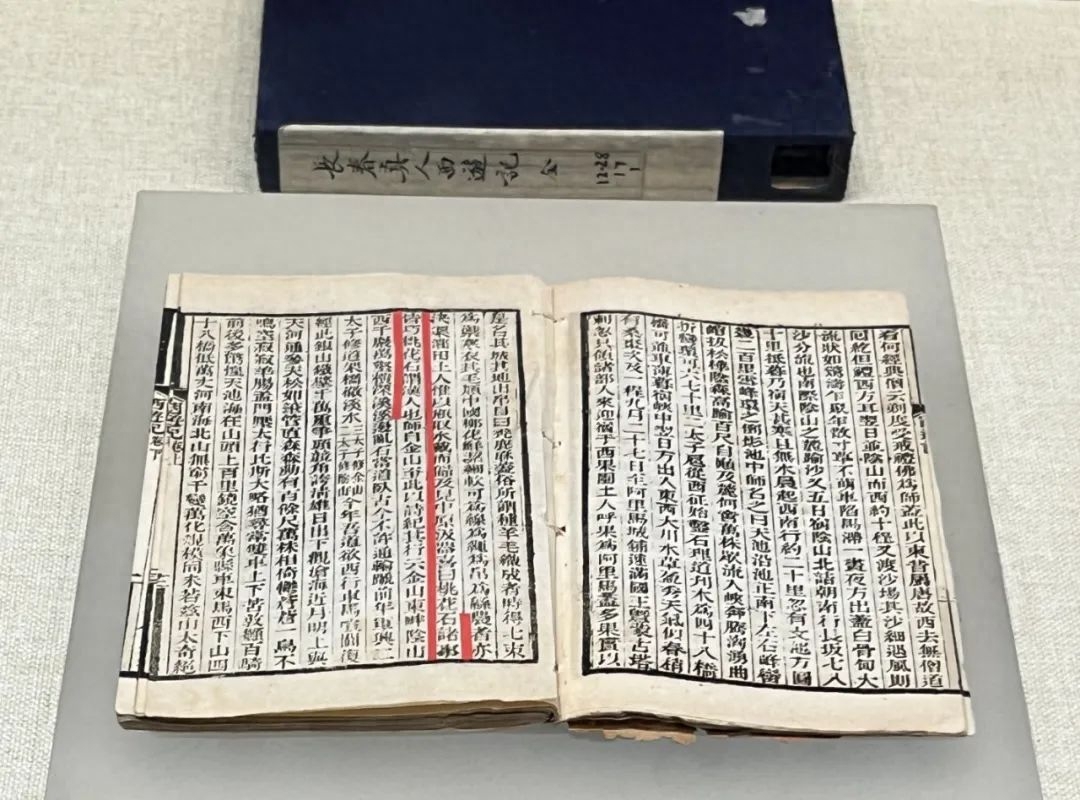 長春真人西遊記 全
12.28
17
1
看何經典僧云剃度受戒禮佛為師蓋此以東昔屬唐故西去無僧道
回紇但禮西方耳翌日並陰山而西約十程又渡沙場其沙細遇風則
流狀如驚濤乍聚乍散寸草不萌車陷馬滯一晝夜方出蓋白骨甸大
沙分流也南際陰山之麓踰沙又五日宿陰山北詰朝南行長坂七八
十里抵暮乃宿天甚寒且無水晨起西南行約二十里忽有大池方圓
幾二百里雪峰環之倒影池中師名之曰天池沿池正南下左右峰巒
峭拔松樺陰森高踰百尺自巔及麓何啻萬株眾流入峽奔騰洶湧曲
折彎環可六七十里二太子扈從西征始鑿石理道刊木為四十八橋
橋可並車薄暮宿峽中翌日方出入東西大川水草盈秀天氣似春稍
有桑棗次及一程九月二十七日至阿里馬城鋪速滿國王暨蒙古塔
剌忽只領諸部人來迎宿于西果園土人呼果為阿里馬蓋多果實以
是名其城其地出帛目曰禿鹿麻蓋俗所謂種羊毛織成者時得七束
為禦寒衣其毛類中國柳花鮮潔細軟可為線為繩為帛為綿農者亦
決渠灌田土人惟以瓶取水戴而歸及見中原汲器喜曰桃花石諸事
皆巧桃花石謂漢人也師自金山至此以詩紀其行云金山東畔陰山
西千巖萬壑攢深溪溪邊亂石當道臥古今不許通輪蹄前年軍興二
太子修道架橋徹溪水三太子修金山二太子修陰山今年吾道欲西行車馬喧闐復
經此銀山鐵壁千萬重爭頭競角誇清雄日出下觀滄海近月明上與
天河通參天松如筆管直森森動有百餘尺萬株相倚鬱蒼蒼一鳥不
鳴空寂寂羊腸孟門壓太行比斯大略猶尋常雙車上下苦敦顛百騎
前後多驚惶天池海在山頭上百里鏡空含萬象縣車束馬西下山四
十八橋低萬丈河南海北山無窮千變萬化規模同未若茲山太奇絕